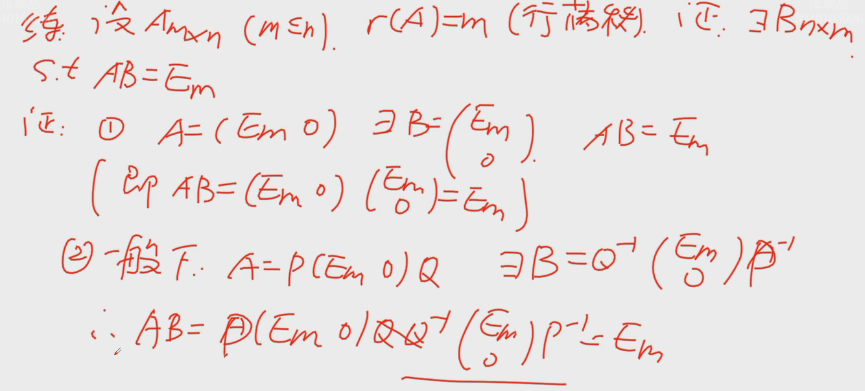 练: 设 Am×n (m≤n). r(A)=m (行满秩). 证: ∃Bn×m.
s.t AB=Em
证: ① A=(Em 0) ∃B=(Em 0). AB=Em
(即 AB=(Em 0)(Em 0)=Em)
② 一般下: A=P(Em 0)Q ∃B=Q⁻¹(Em 0)P⁻¹
∴ AB=P(Em 0)QQ⁻¹(Em 0)P⁻¹=Em